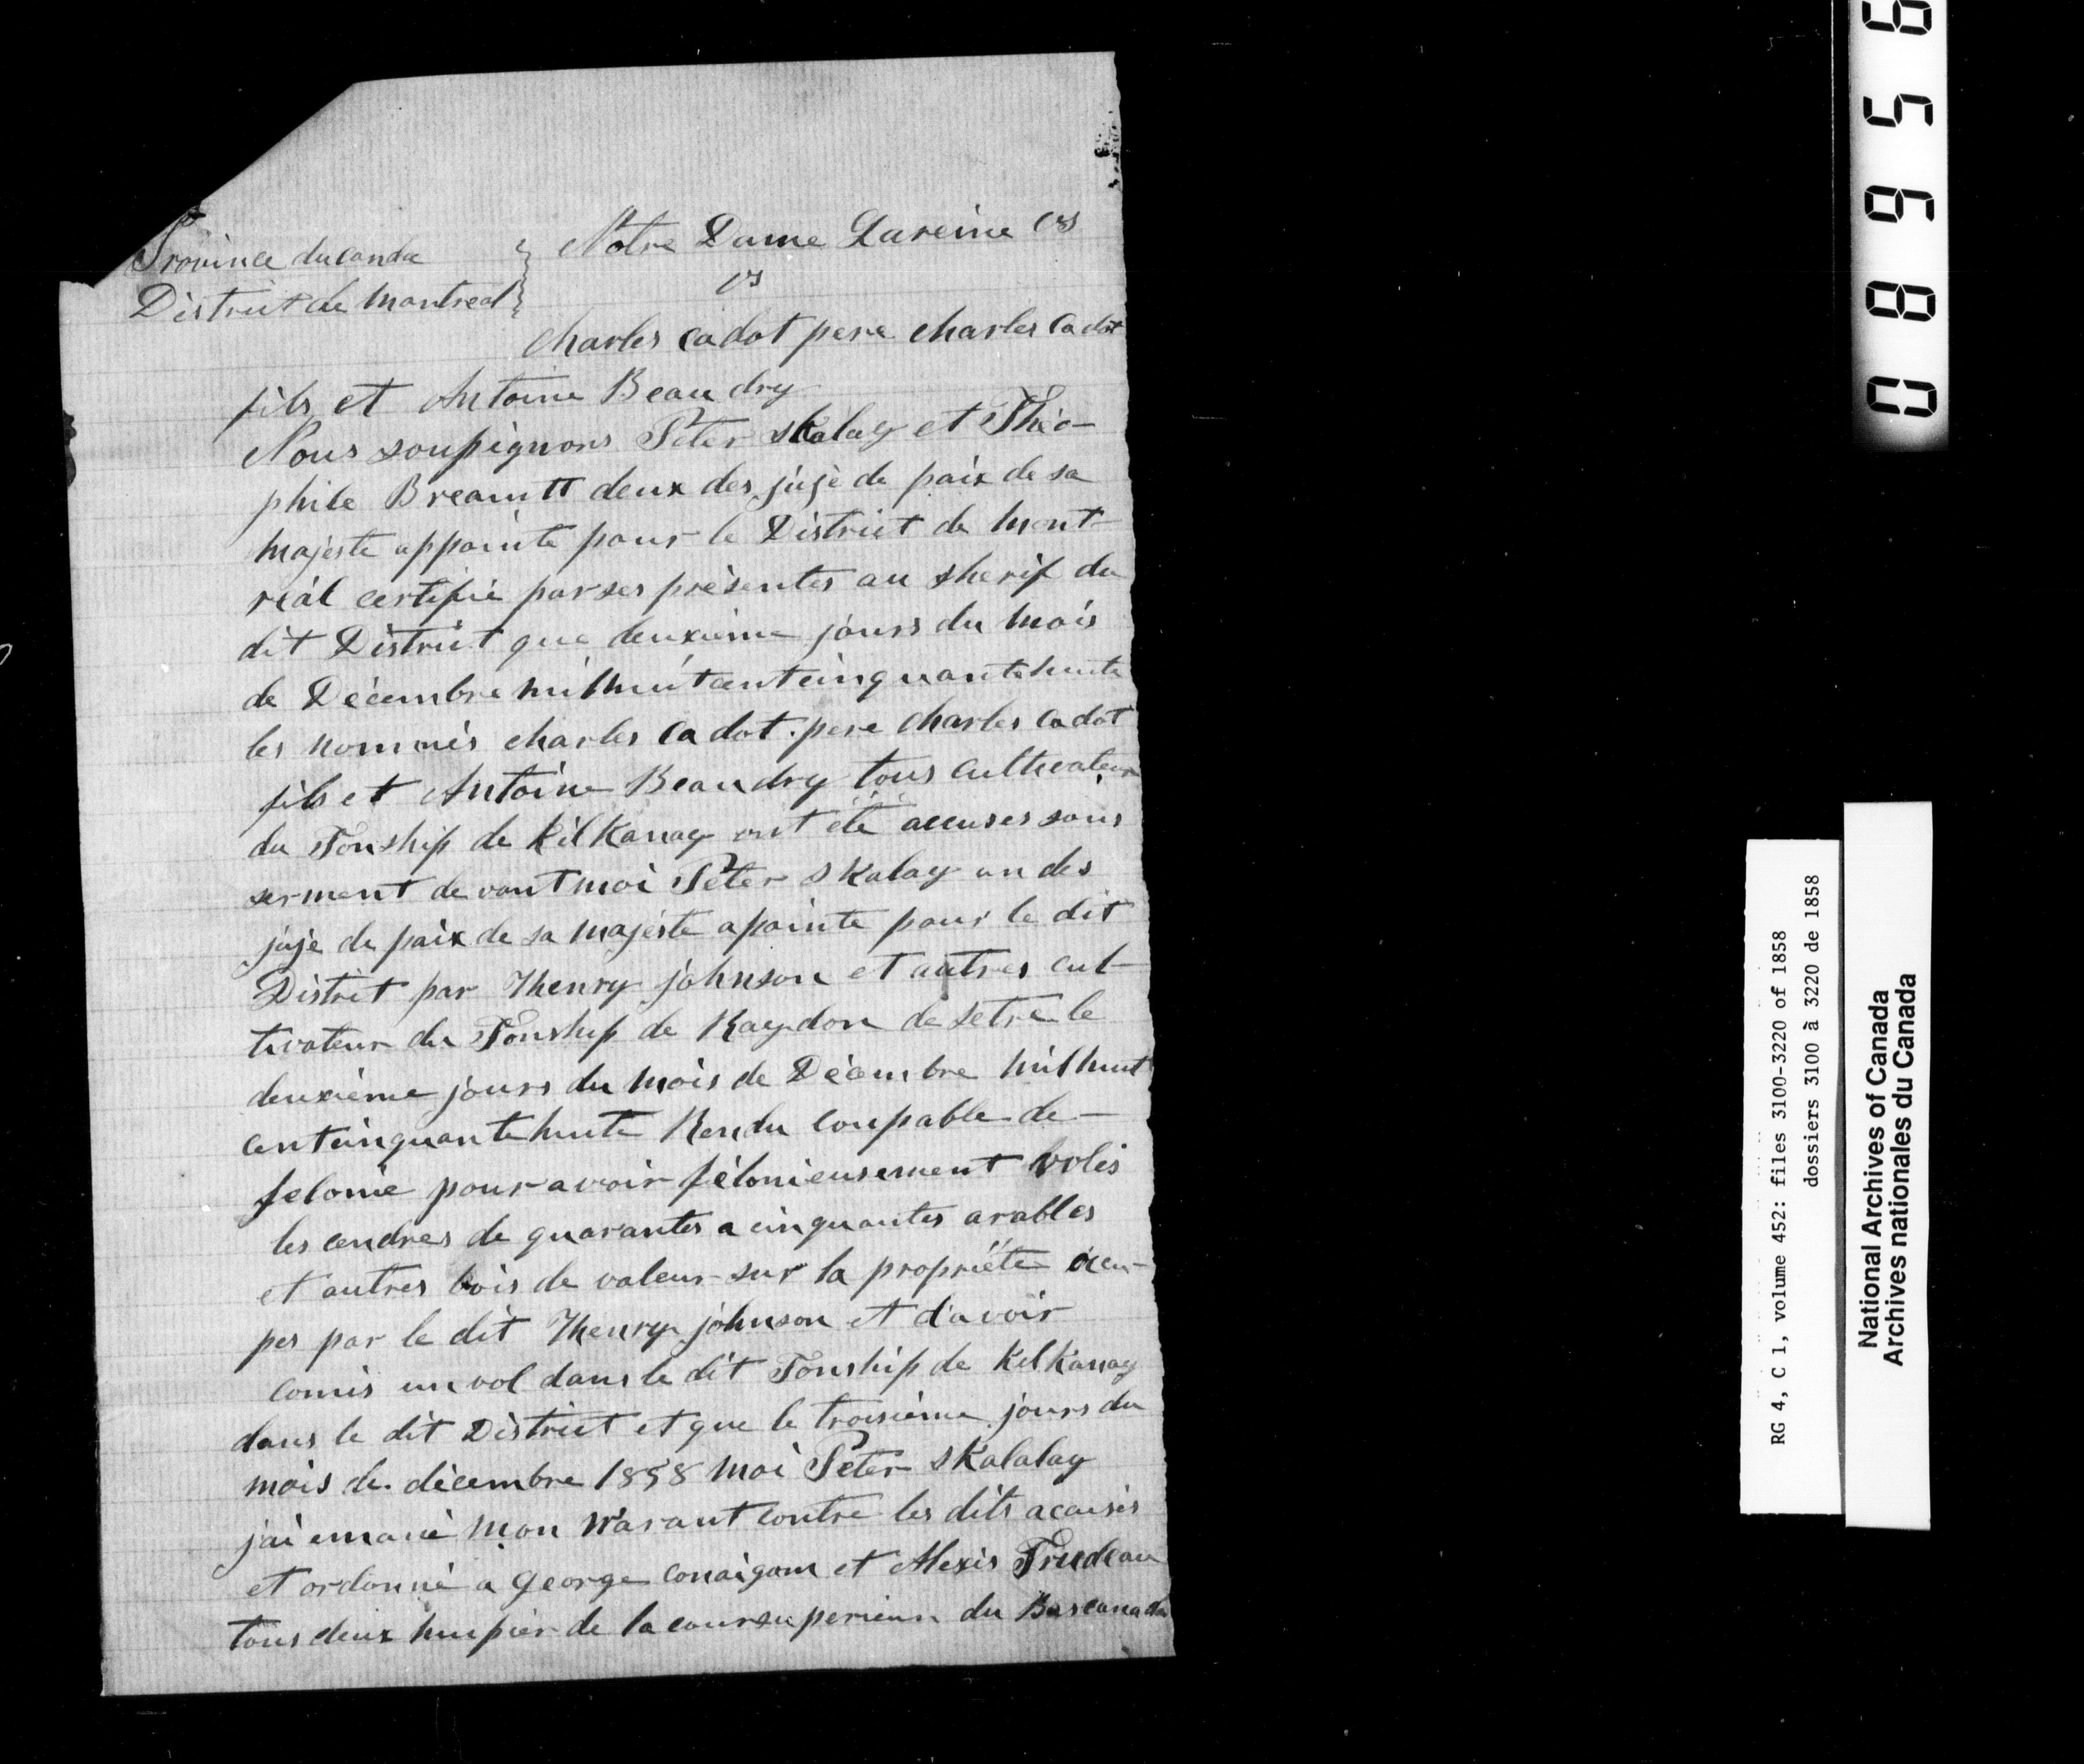 Province du canda
District de Montreal
Notre Dame Lareine vs
vs
Charles cadot pere charles cadot
fils et Antoine Beaudry
Nous soussignons Peter skalay et Théo-
phile Breautt deux des juje de paix de sa
Majeste appointe pour le District de Mont-
réal certifié par ses présentes au sherif du
dit District que deuxieme jours du Mois
de Décembre Mil huit cent cinquante huite
les nommés charles cadot pere charles cadot
fils et Antoine Beaudry tous cultivateur
du Tonship de Kilkanay ont été accuses sous
serment devant moi Peter skalay un des
juje de paix de sa Majéste apointe pour le dit
Distrit par Thenry johnson et autres cul-
tivateur du Tonship de Raydon de setre le
deuxième jours du Mois de Décembre Mil huit
cent cinquante huite Rendu coupable de
felonie pour avoir félonieusement volés
les cendres de quarantes a cinquantes arables
et autres bois de valeur sur la propriéte ocu-
pes par le dit Thenry johnson et davoir
comis un vol dans le dit Tonship de Kilkanay
dans le dit District et que le troisième jours du
mois de décembre 1858 Moi Peter skalalay
jai emané Mon Warant contre les dits acausés
et ordonné a George conaigam et Alexis Trudeau
tous deux huissier de la cour superieur du Bas canada
08956
RG 4, C 1, volume 452: files 3100-3220 of 1858
dossiers 3100 à 3220 de 1858
National Archives of Canada
Archives nationales du Canada